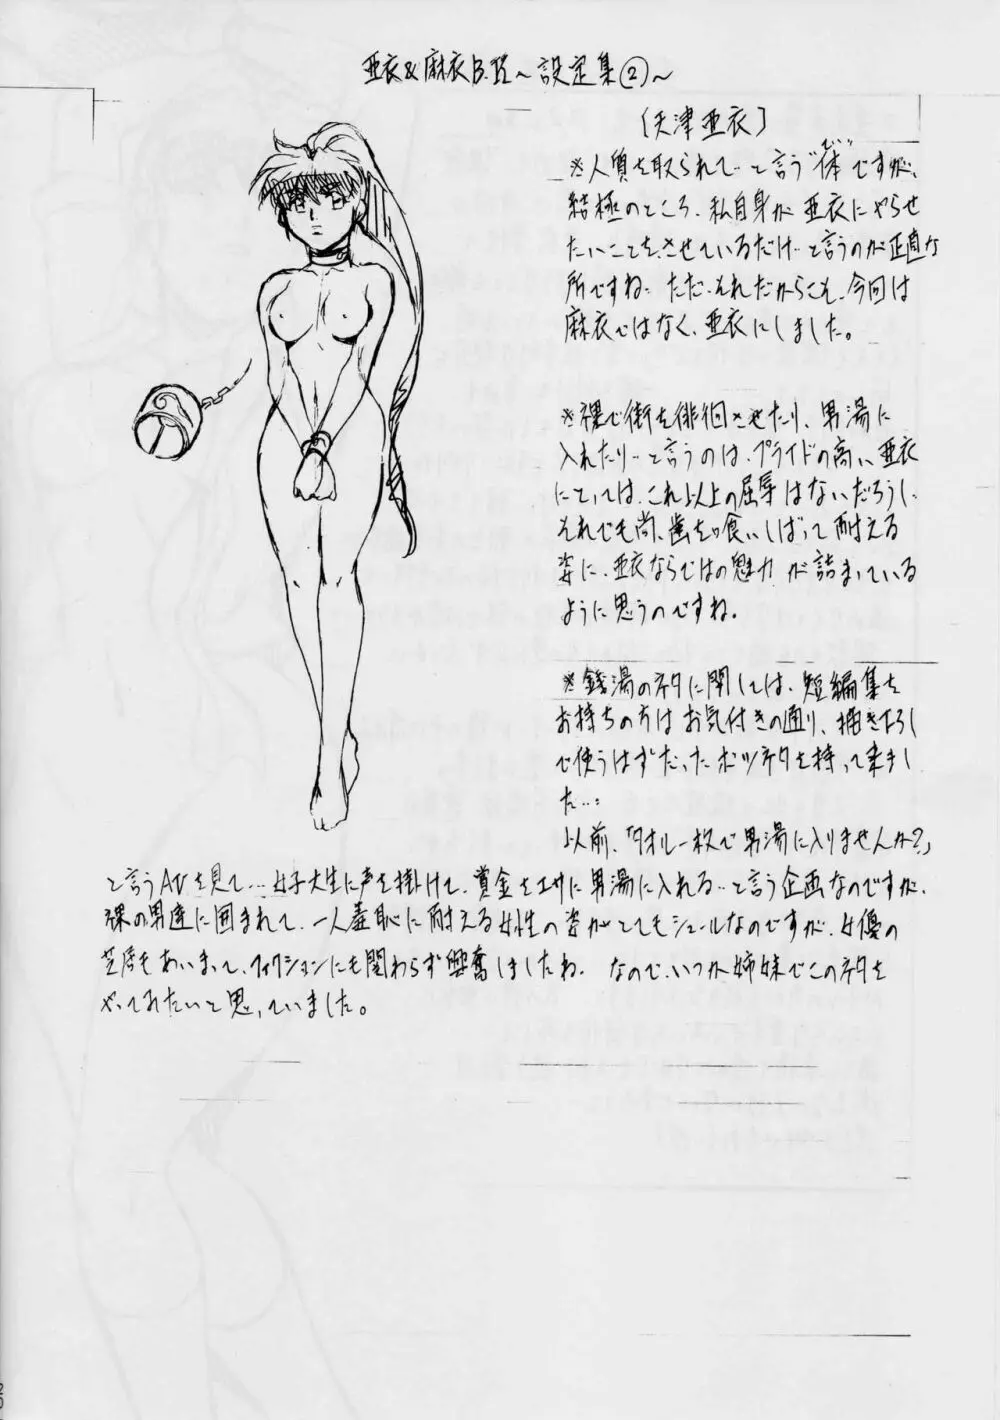 亜衣&麻衣B.E.～設定集②～
〔天津亜衣〕
※人質を取られて…と言う"体"ですが、
てい
結極のところ、私自身が亜衣にやらせ
たいことをさせているだけ…と言うのが正直な
所ですね…ただ、それだからこそ、今回は
麻衣ではなく、亜衣にしました。
※裸で街を徘徊させたり、男湯に
入れたり…と言うのは、プライドの高い亜衣
にとっては、これ以上の屈辱はないだろうし、
それでも尚、歯を喰いしばって耐える
姿に、亜衣ならではの魅力が詰まっている
ように思うのですね。
※銭湯のネタに関しては、短編集を
お持ちの方はお気付きの通り、描き下ろし
で使うはずだったボツネタを持って来まし
た…
以前、「タオル一枚で男湯に入りませんか?」
と言うAVを見て…女子大生に声を掛けて、賞金をエサに男湯に入れる…と言う企画なのですが、
裸の男達に囲まれて、一人羞恥に耐える女性の姿がとてもシュールなのですが、女優の
芝居もあいまって、フィクションにも関わらず興奮しましたね。なので、いつか姉妹でこのネタを
やってみたいと思っていました。